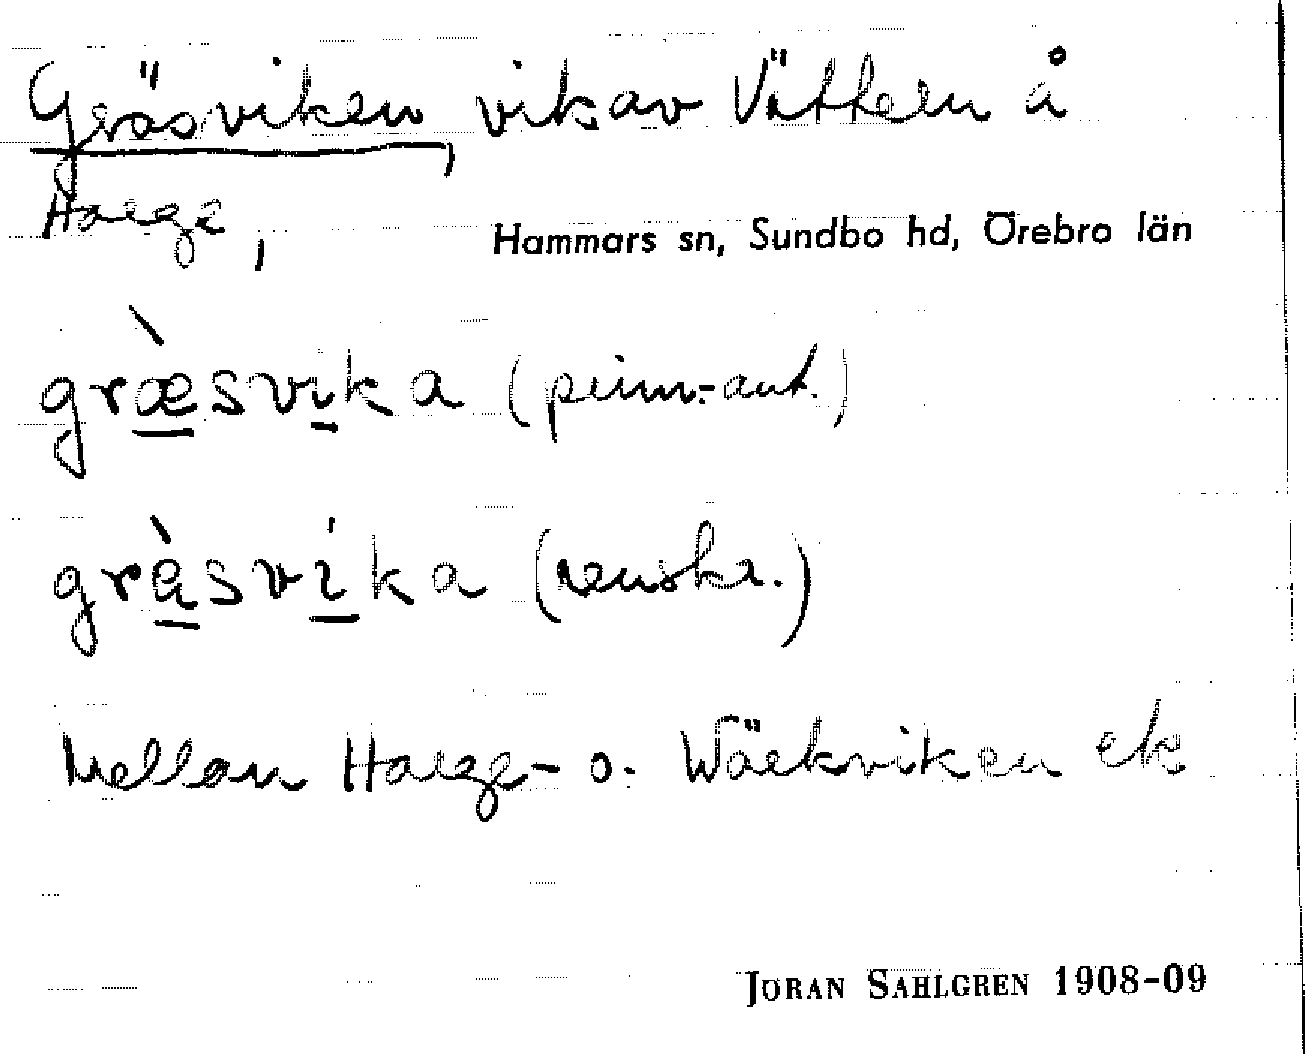 Gräsviken, vik av Vättern å
Harge,
Hammars sn, Sundbo hd, Örebro län
græ̀svika (prim.-ant.)
grä̀svíka (renskr.)
Mellan Harge- o. Wäckviken ek
JÖRAN SAHLGREN 1908-09